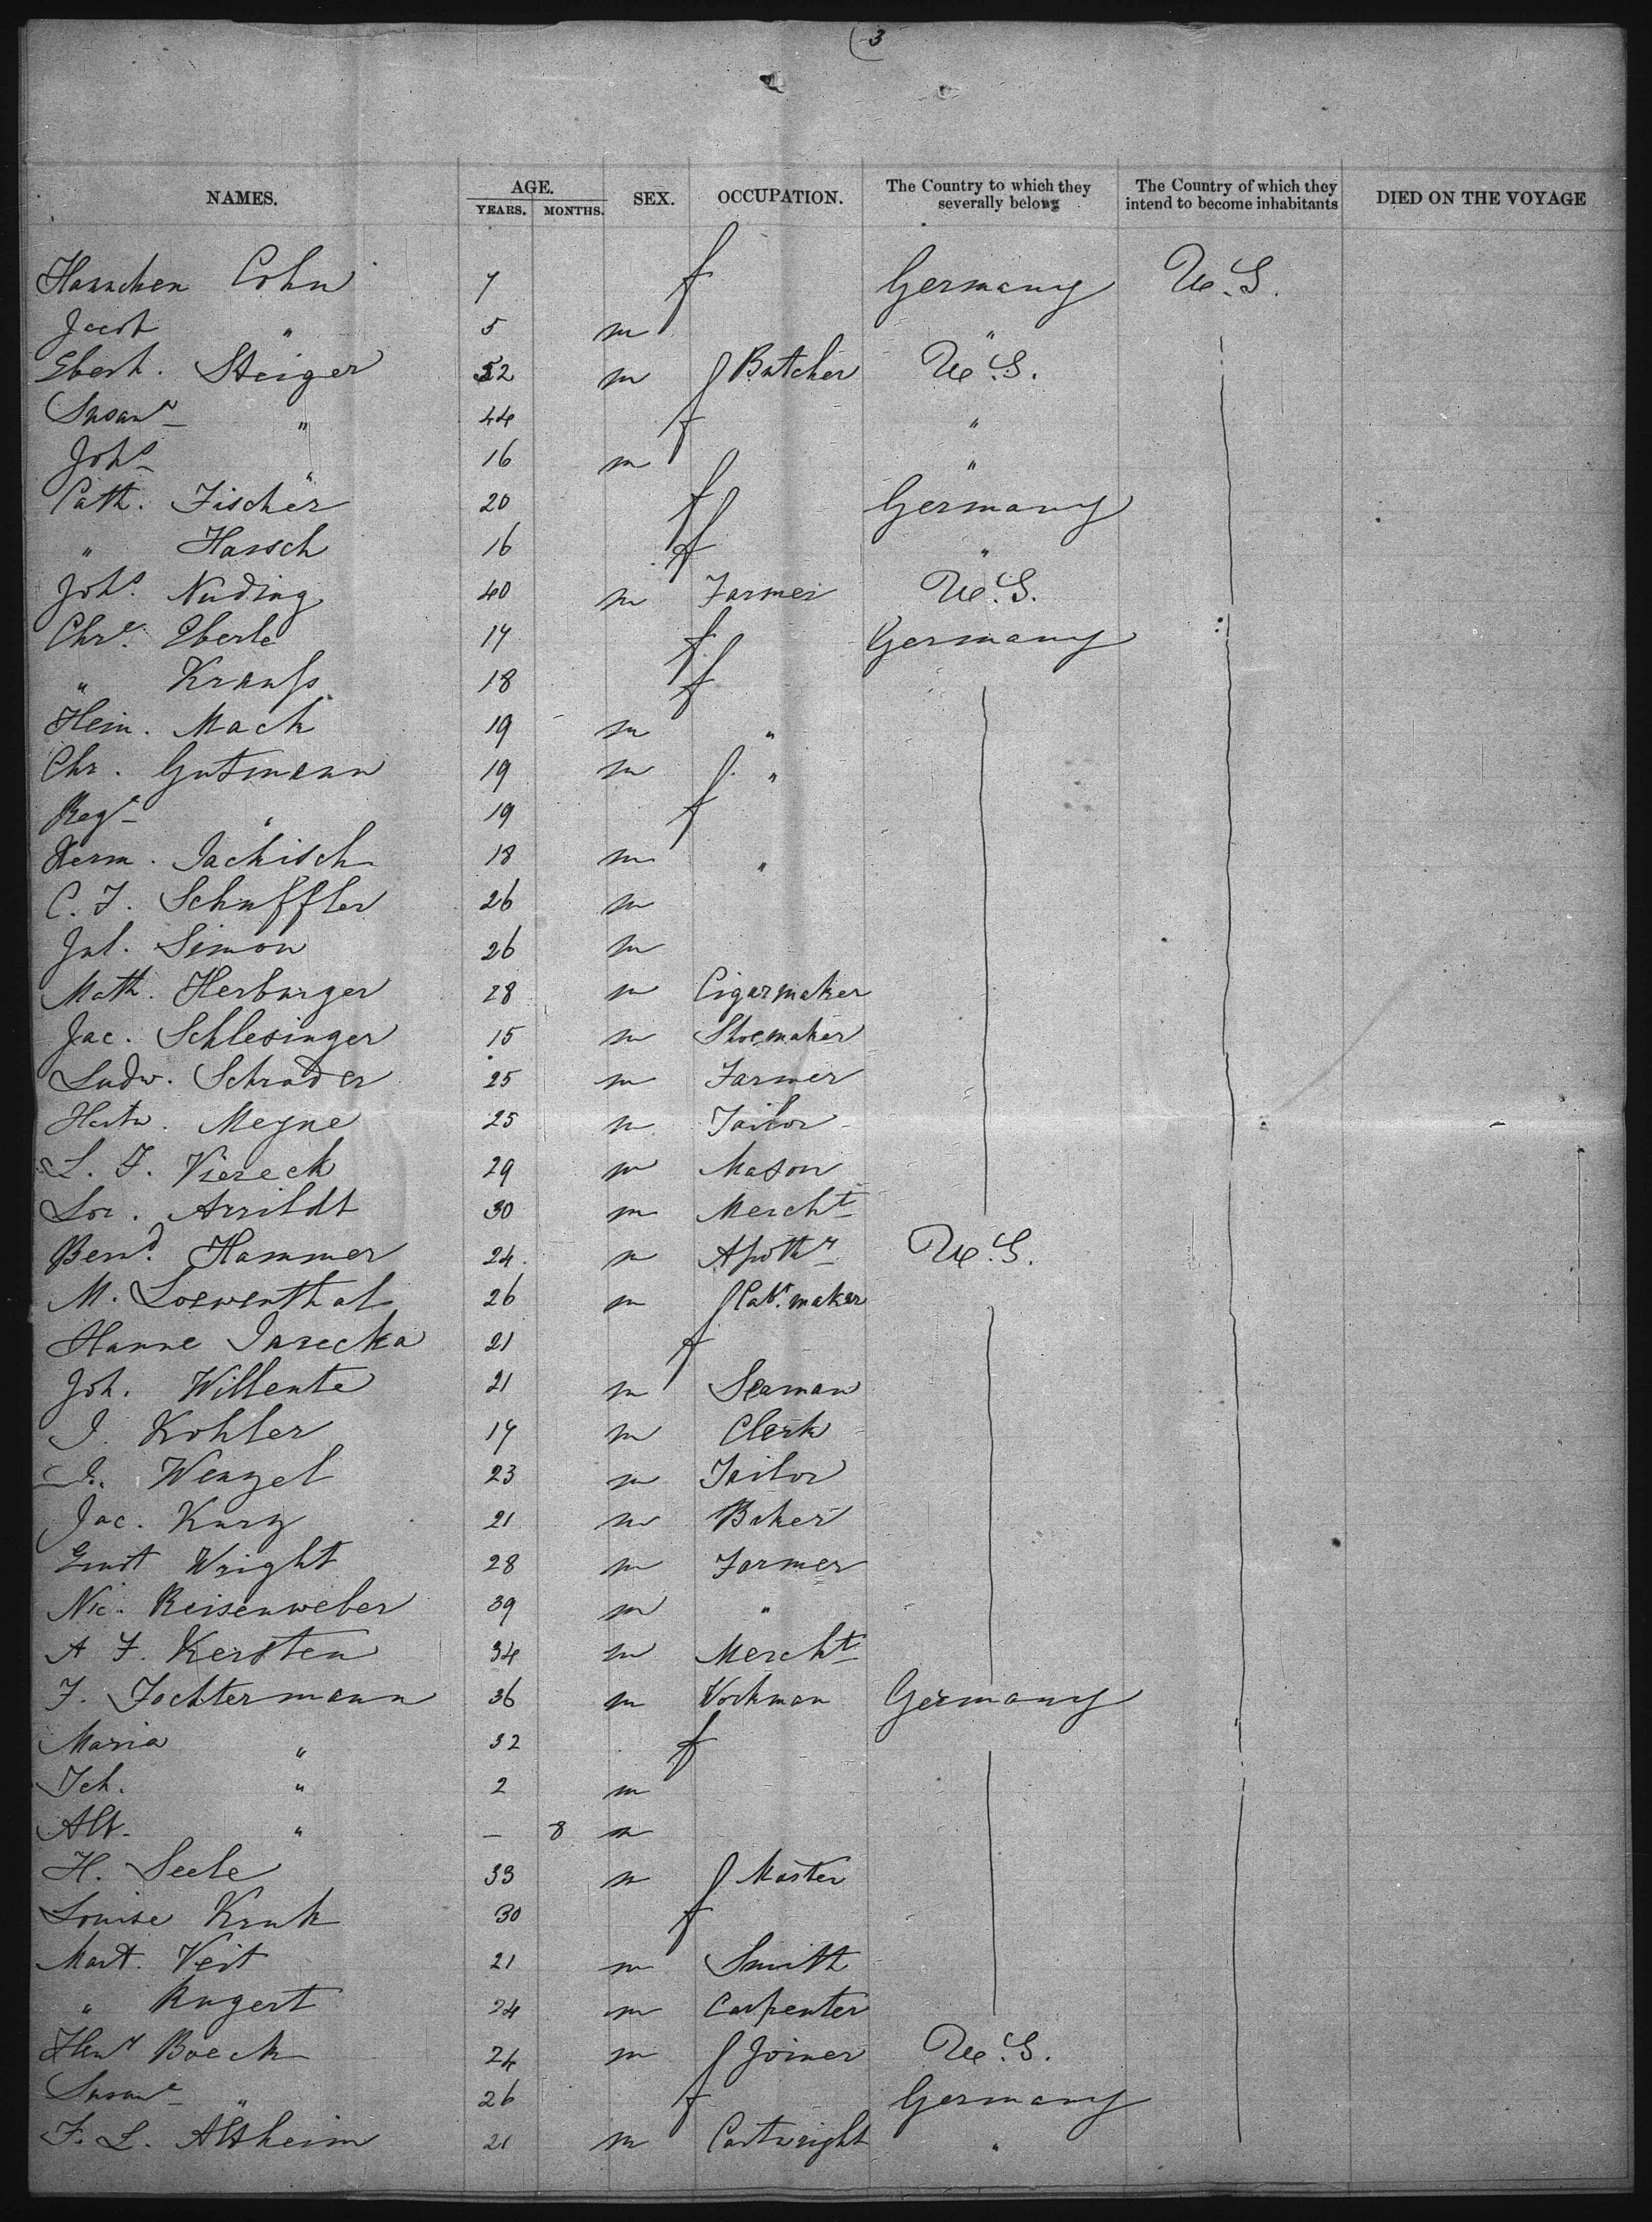 3
NAMES. AGE. YEARS. MONTHS. SEX. OCCUPATION. The Country to which they severally belong The Country of which they intend to become inhabitants DIED ON THE VOYAGE
Hannchen Cohn 7 f Germany U.S.
Jacob " 5 m "
Eberh. Steiger 52 m Butcher U.S.
Susane " 44 f "
Johs " 16 m "
Cath. Fischer 20 f Germany
" Hassch 16 f "
Johs. Nuding 40 m Farmer U.S.
Chre. Eberle 17 f Germany
" Krauss 18 f
Hein. Mack 19 m "
Chr. Gutmann 19 m "
Rege " 19 f
Herm. Jackisch 18 m "
C. F. Schuffler 26 m
Jul. Simon 26 m
Math. Herburger 28 m Cigarmaker
Jac. Schlesinger 15 m Shoemaker
Ludw. Schrader 25 m Farmer
Hartw. Meyne 25 m Tailor
L. F. Viereck 29 m Mason
Lor. Arrildt 30 m Mercht
Bernd. Hammer 24 m Apothr U.S.
M. Loewenthal 26 m Cabt. maker
Hanne Jarecka 21 f
Joh. Willente 21 m Seaman
J. Kohler 17 m Clerk
Wenzel 23 m Tailor
Jac. Kurz 21 m Baker
Ernst Wright 28 m Farmer
Nic. Reisenweber 39 m "
A F. Kersten 34 m Mercht
F. Tochtermann 36 m Workman Germany
Maria " 32 f "
Joh. " 2 m
Alb. " — 8 m
H. Seele 33 m Master
Louise Kruk 30 f
Mart. Veit 21 m Smith
" Rugert 24 m Carpenter
Heny Boeck 24 m Joiner U.S.
Susane " 26 f Germany
F. L. Altheim 21 m Cartwright "